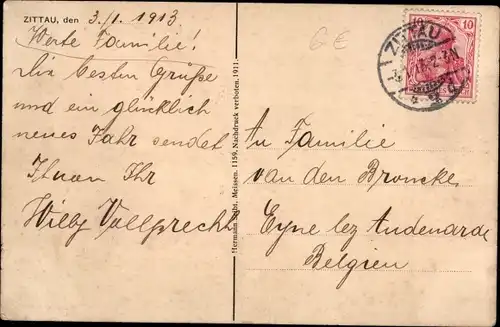 ZITTAU, den 3./1. 1913
Werte Familie!
Die besten Grüße
und ein glücklich
neues Jahr sendet
Ihnen Ihr
Willy Vollprecht
Hermann Meissen. 1159. Nachdruck verboten. 1911.
GE
ZITTAU
10 10
An Familie
van den Broncke
Eyne lez Audenarde
Belgien